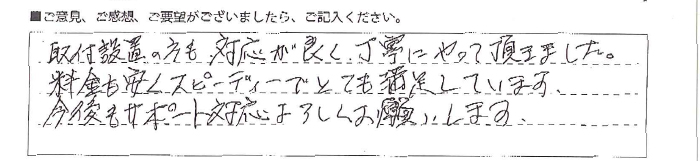 ■ご意見、ご感想、ご要望がございましたら、ご記入ください。
取付設置の方も対応が良く、丁寧にやって頂きました。
料金も安くスピーディーでとても満足しています。
今後もサポート対応よろしくお願いします。